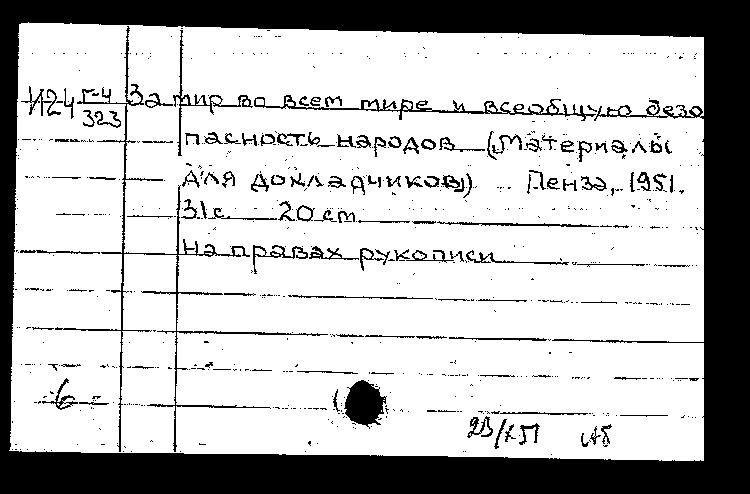 И24 Г-4/323 За мир во всем мире и всеобщую безо
пасность народов (Материалы
для докладчиков) Пенза, 1951.
31с. 20 cm.
На правах рукописи
6